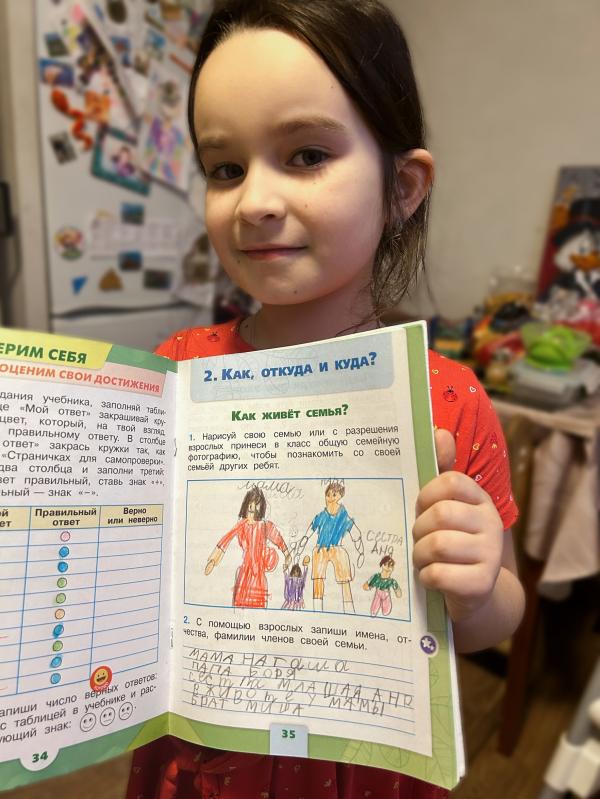 ЕРИМ СЕБЯ
ОЦЕНИМ СВОИ ДОСТИЖЕНИЯ
дания учебника, заполняй табли-
це «Мой ответ» закрашивай кру-
цвет, который, на твой взгляд,
правильному ответу. В столбце
ответ» закрась кружки так, как
«Страничках для самопроверки».
два столбца и заполни третий:
вет правильный, ставь знак «+»,
ьный — знак «–».
Правильный ответ
Верно или неверно
апиши число верных ответов:
с таблицей в учебнике и рас-
ующий знак:
34
2. КАК, ОТКУДА И КУДА?
КАК ЖИВЁТ СЕМЬЯ?
1. Нарисуй свою семью или с разрешения
взрослых принеси в класс общую семейную
фотографию, чтобы познакомить со своей
семьёй других ребят.
мама
ПАПА
СЕСТРА
АНЯ
2. С помощью взрослых запиши имена, от-
чества, фамилии членов своей семьи.
МАМА НАТАША
ПАПА БОРЯ
МЛАШАЯ
МАМЫ
БРАТ МИША
35